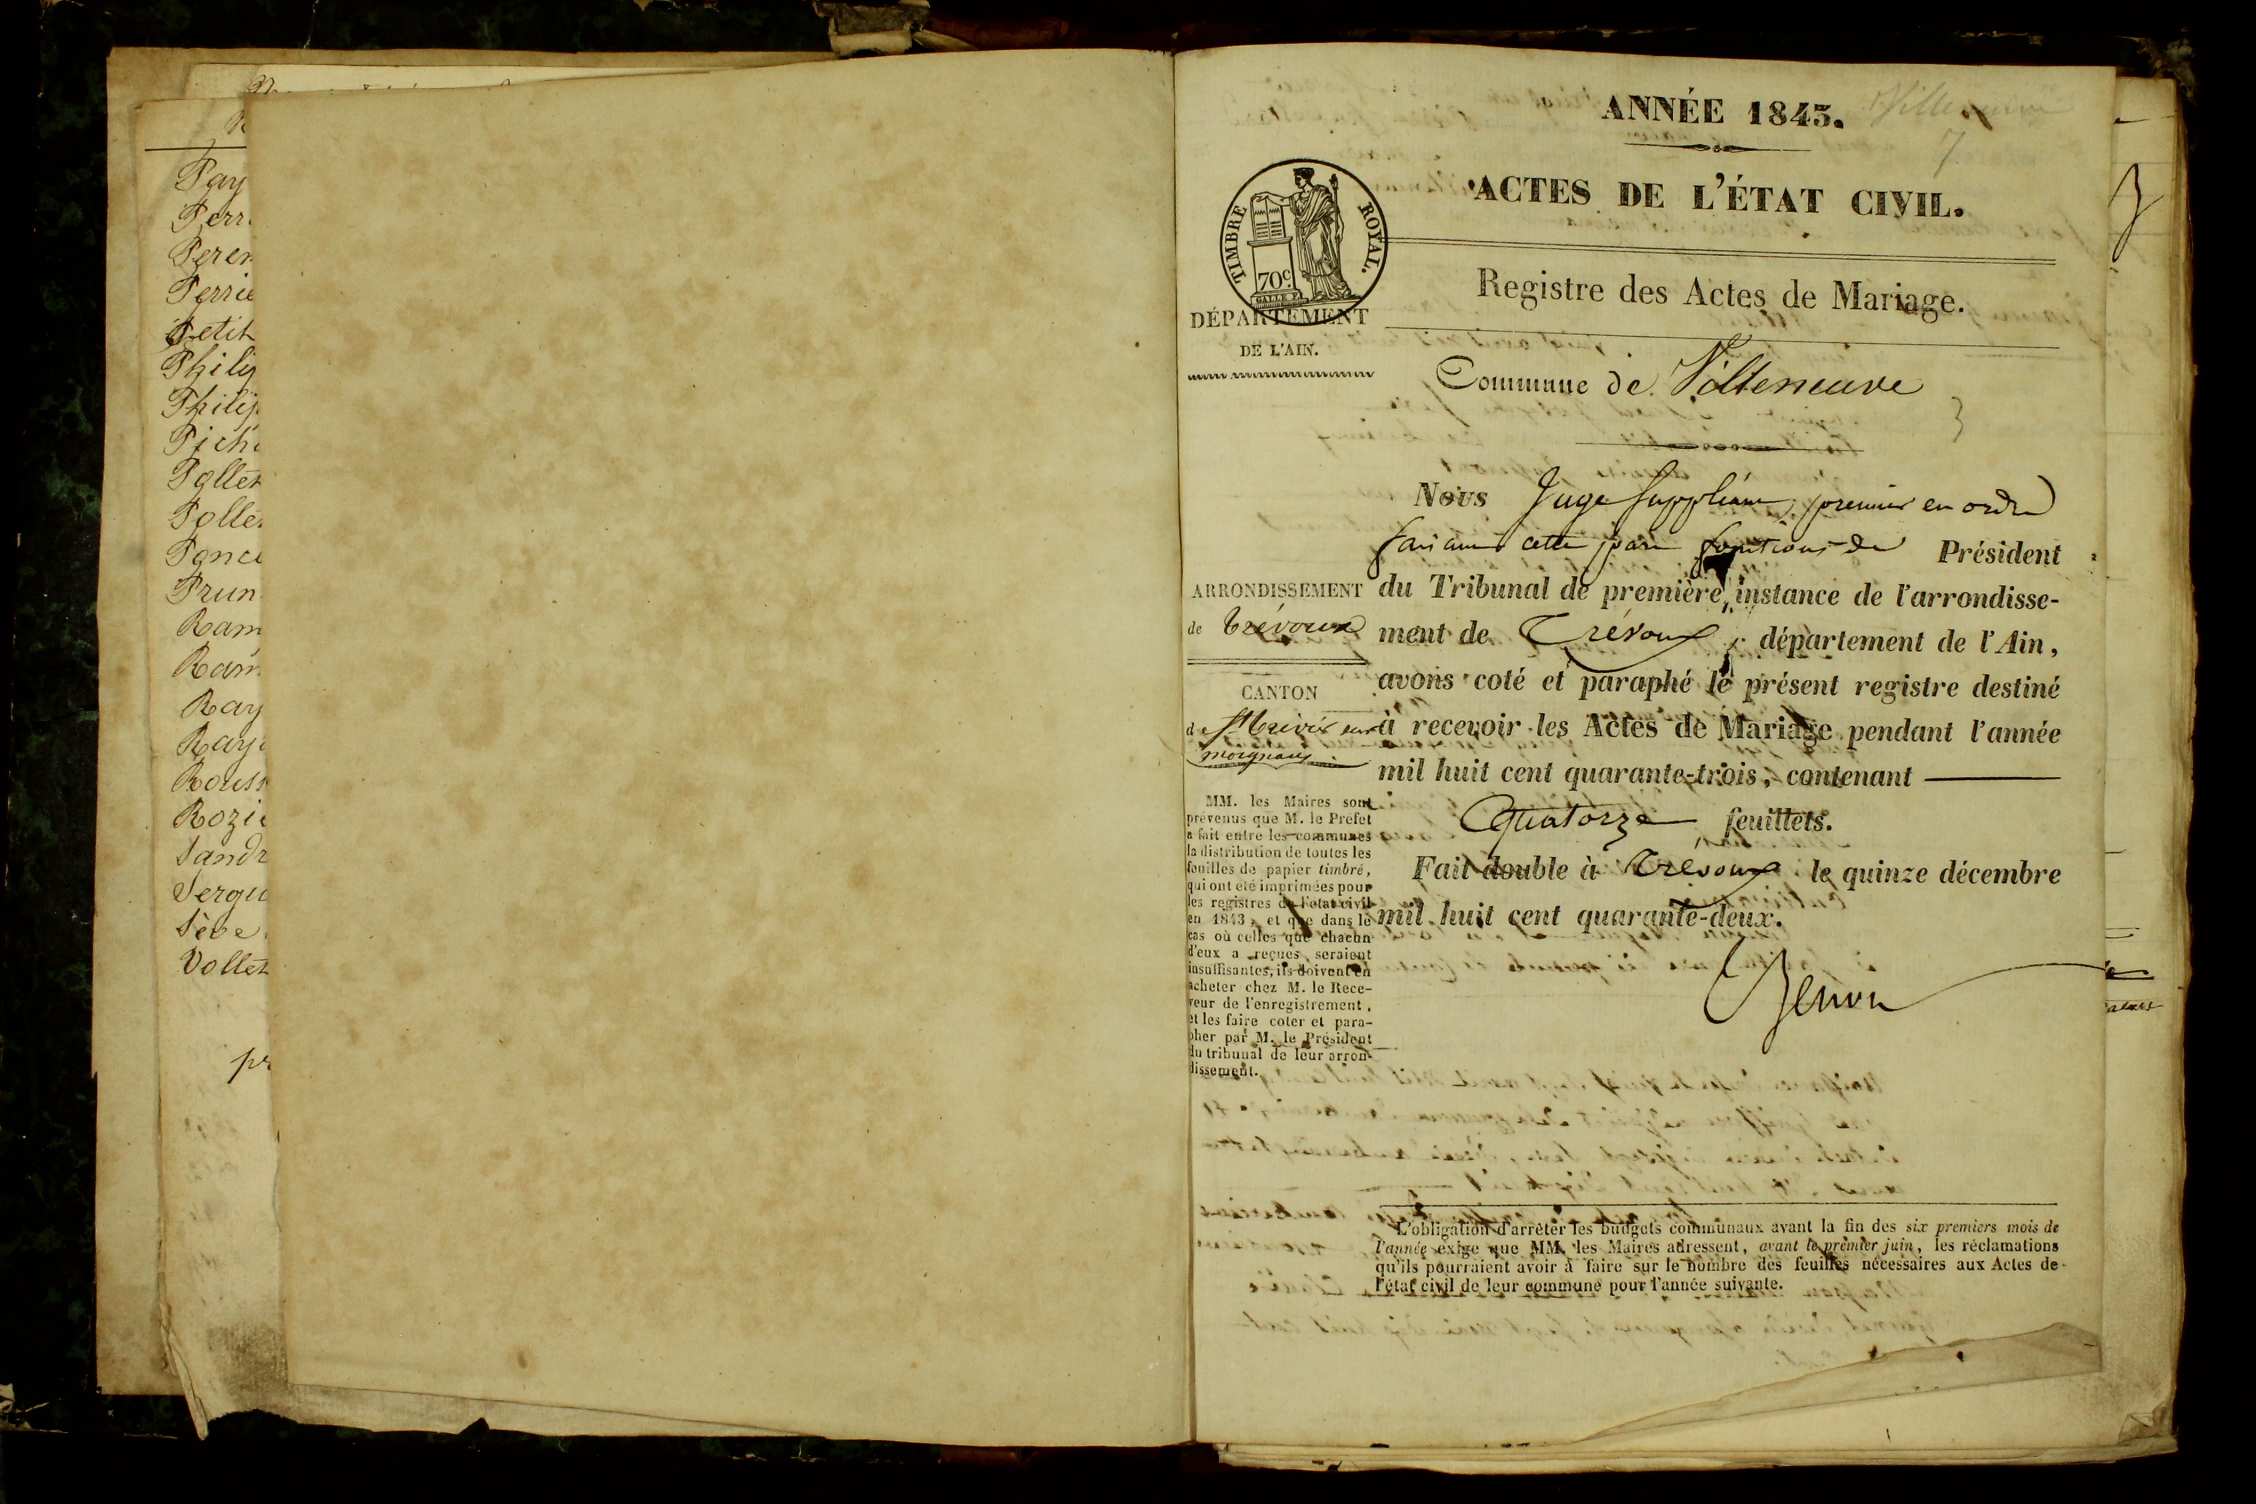 Pay
Perr
Peren
Perrie
Petit
Philip
Philip
Picha
Pollet
Pollet
Ponce
Prun
Ram
Ram
Ray
Ray
Rouss
Rozie
Sandr
Sergu
Sève
Vollet
pr
ANNÉE 1843.
Villeneuve
7
ACTES DE L'ÉTAT CIVIL.
TIMBRE ROYAL.
70c
Registre des Actes de Mariage.
DÉPARTEMENT
DE L'AIN.
Commune de Villeneuve
3
Nous Juge Suppléant, premier en ordre
faisant cette part fonctions de Président
ARRONDISSEMENT
de Trévoux
du Tribunal de première instance de l'arrondisse-
ment de Trévoux, département de l'Ain,
avons coté et paraphé le présent registre destiné
à recevoir les Actes de Mariage pendant l'année
mil huit cent quarante-trois, contenant
Quatorze feuillets.
Fait double à Trévoux le quinze décembre
mil huit cent quarante-deux.
CANTON
de St Trivier sur
moignans
MM. les Maires sont
prévenus que M. le Préfet
a fait entre les communes
la distribution de toutes les
feuilles de papier timbré,
qui ont été imprimées pour
les registres de l'état civil
en 1843, et que dans le
cas où celles que chacun
d'eux a reçues seraient
insuffisantes, ils doivent en
acheter chez M. le Rece-
veur de l'enregistrement,
et les faire coter et para-
pher par M. le Président
du tribunal de leur arron-
dissement.
L'obligation d'arrêter les budgets communaux avant la fin des six premiers mois de
l'année exige que MM. les Maires adressent, avant le premier juin, les réclamations
qu'ils pourraient avoir à faire sur le nombre des feuilles nécessaires aux Actes de
l'état civil de leur commune pour l'année suivante.